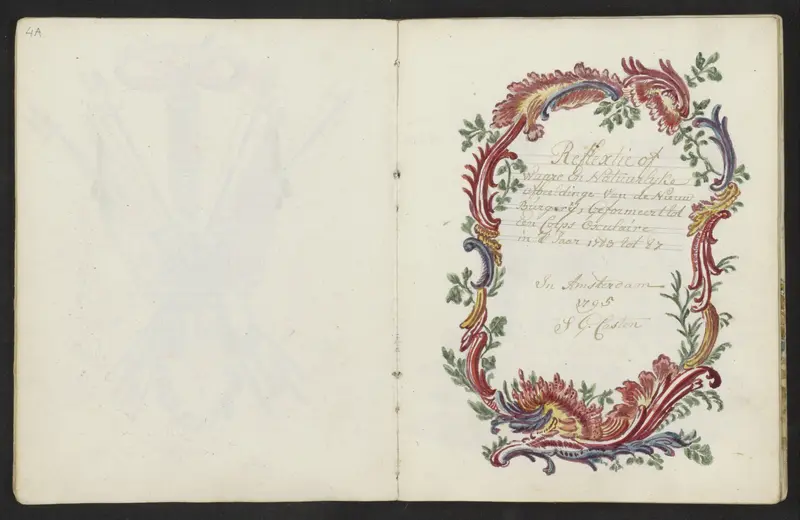 4A
Reflextie of
Waare en Natuurlijke
Afbeeldinge van de Nieuw
Burgerij, Geformeert tot
een Corps
in t Jaar 1783 tot 87
In Amsterdam
1795
S G Casten